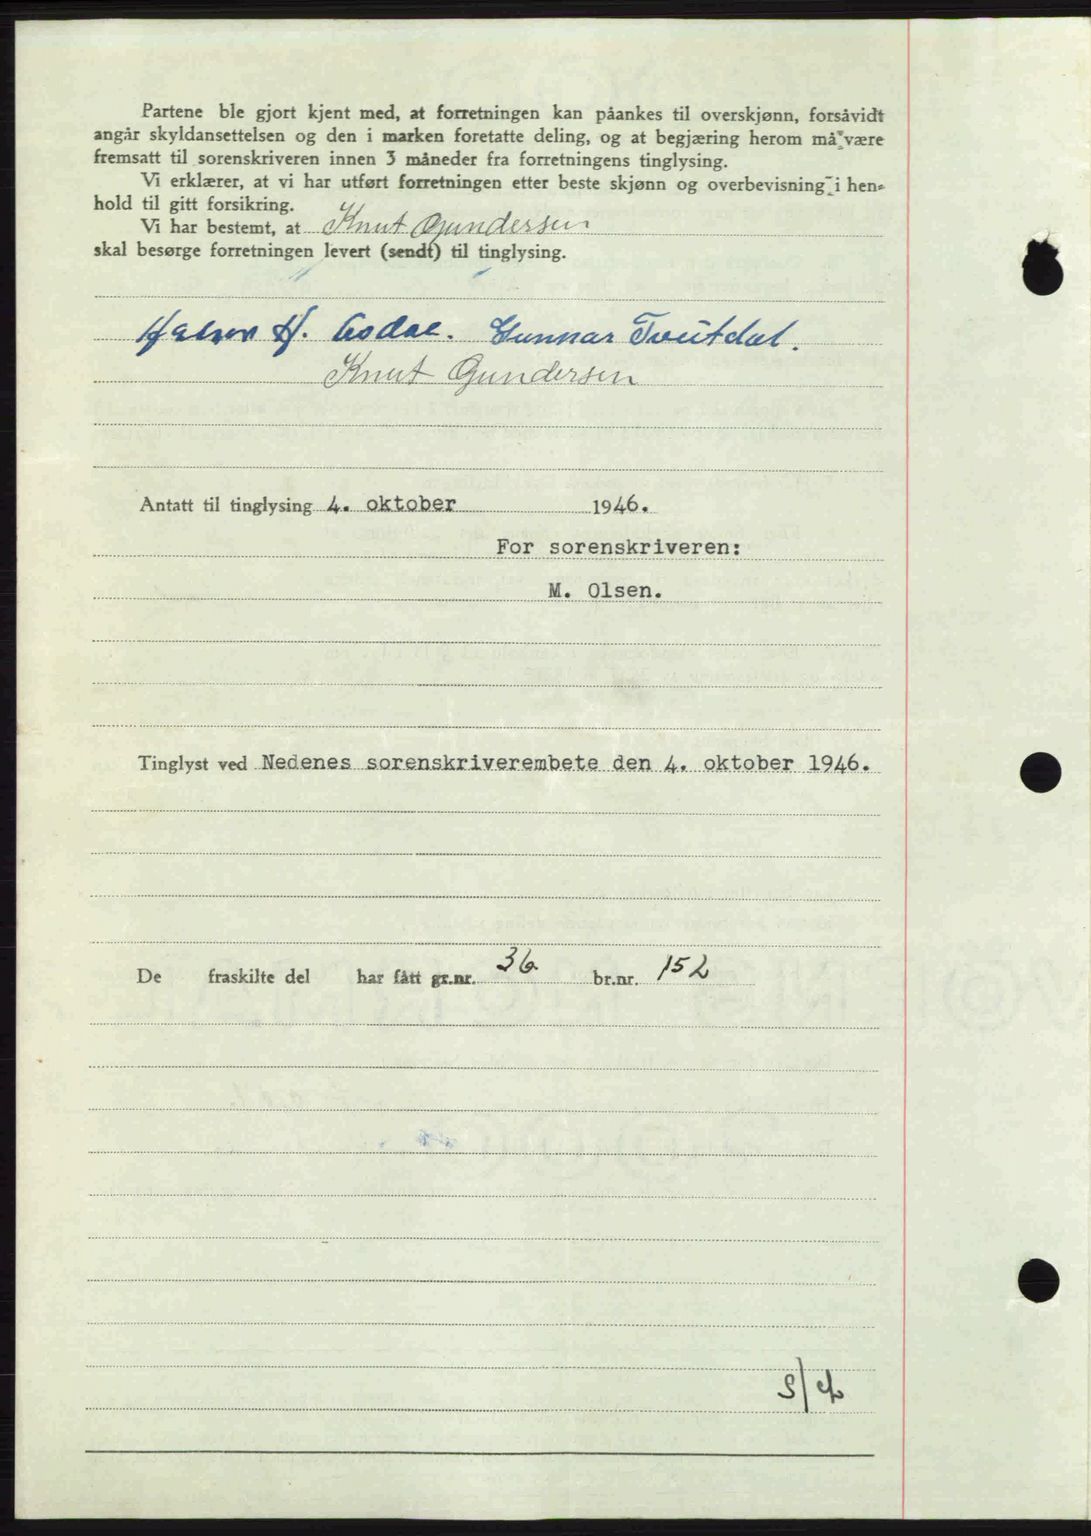 Partene ble gjort kjent med, at forretningen kan påankes til overskjønn, forsåvidt
angår skyldansettelsen og den i marken foretatte deling, og at begjæring herom må være
fremsatt til sorenskriveren innen 3 måneder fra forretningens tinglysing.
Vi erklærer, at vi har utført forretningen etter beste skjønn og overbevisning i hen-
hold til gitt forsikring.
Vi har bestemt, at Knut Gundersen
skal besørge forretningen levert (sendt) til tinglysing.
H. Gunnar Tveitdal.
Knut Gundersen
Antatt til tinglysing 4. oktober 1946.
For sorenskriveren:
M. Olsen.
Tinglyst ved Nedenes sorenskriverembete den 4. oktober 1946.
De fraskilte del har fått gr.nr. 36 br.nr. 152